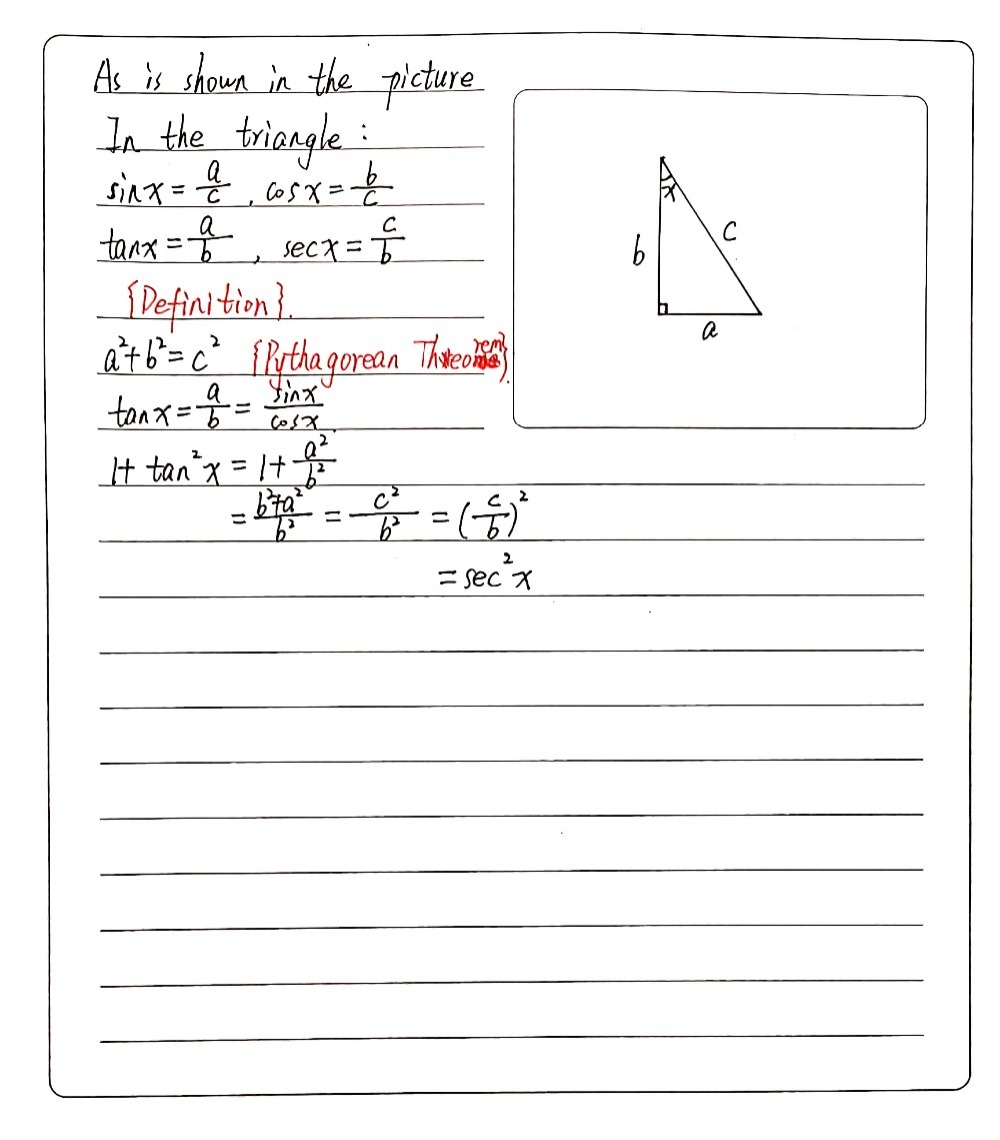 As is shown in the picture
In the triangle :
sinx = a/c , cosx = b/c
tanx = a/b , secx = c/b
{Definition}.
a²+b²=c² {Pythagorean Theorem}.
tanx = a/b = sinx/cosx
1+ tan²x = 1+ a²/b²
= b²+a²/b² = c²/b² = (c/b)²
= sec²x
x
b
c
a